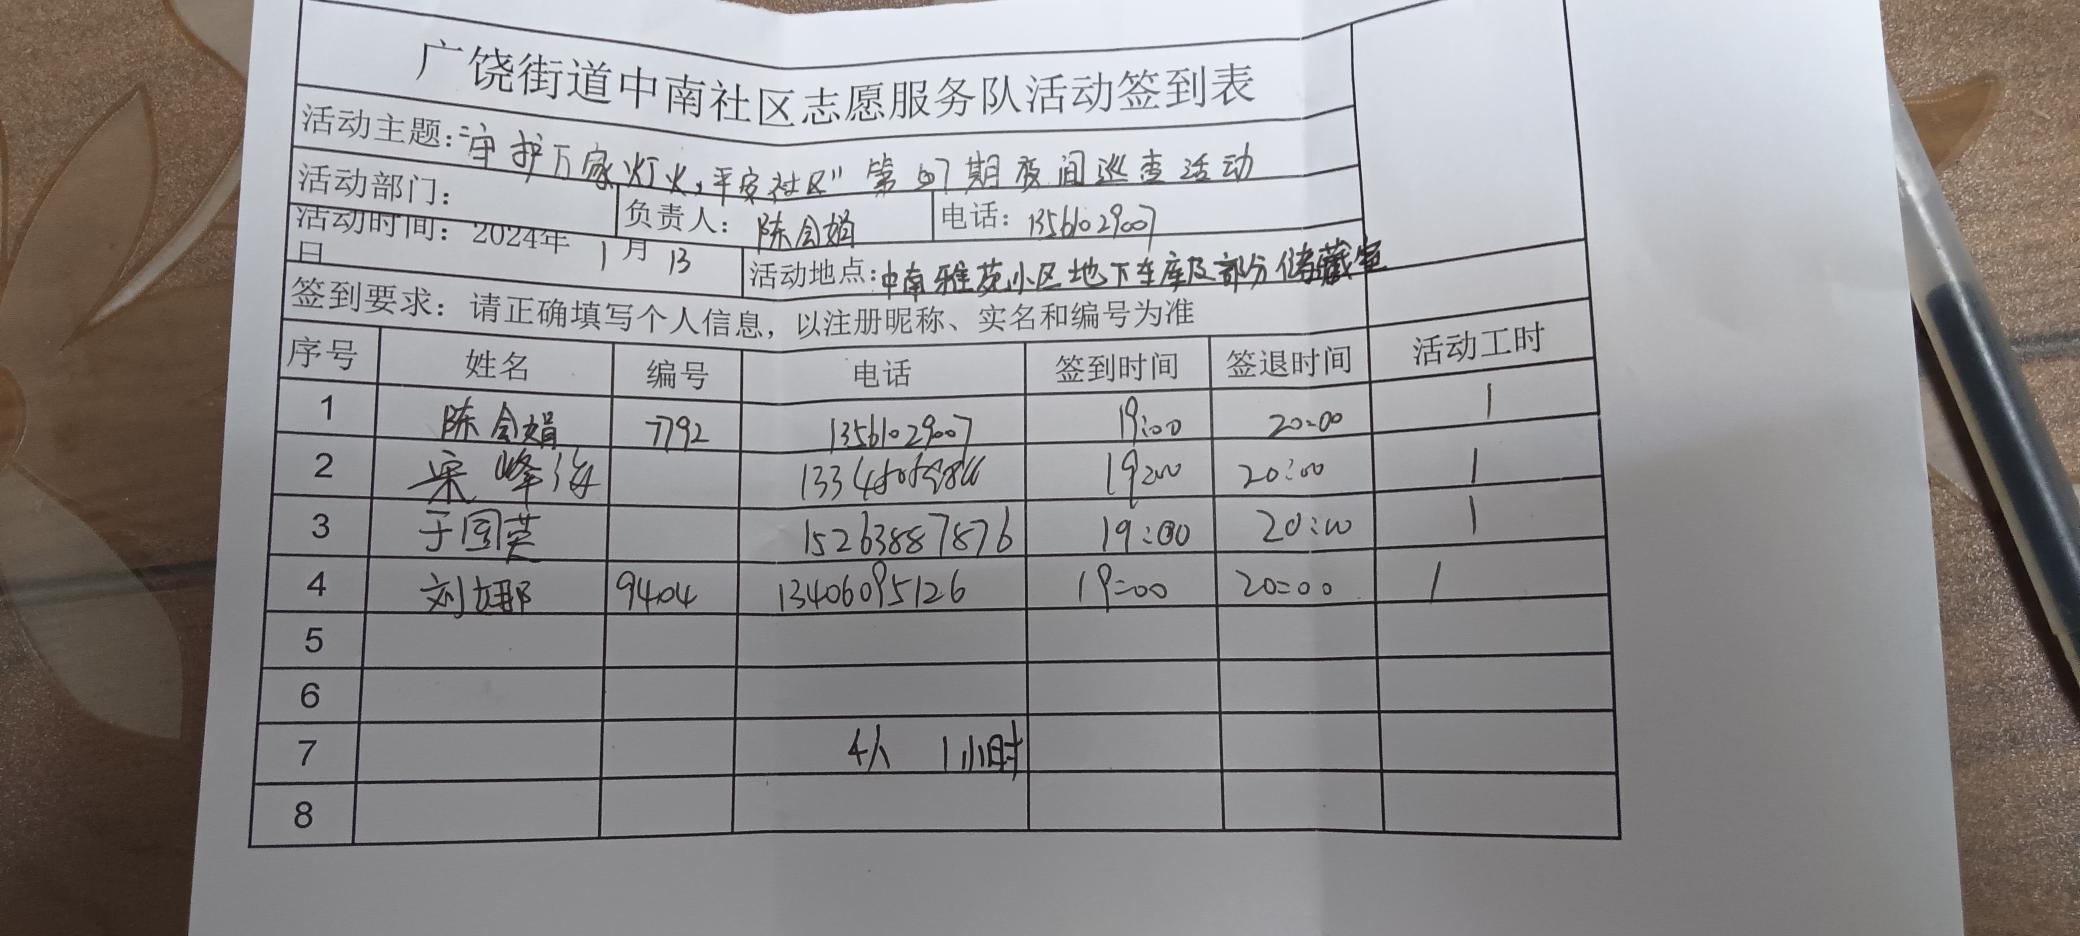 广饶街道中南社区志愿服务队活动签到表
活动主题："守护万家灯火，平安社区"第67期夜间巡查活动
活动部门： 负责人：陈会娟 电话：13561029007
活动时间：2024年1月13日 活动地点：中南雅苑小区地下车库及部分储藏室
签到要求：请正确填写个人信息，以注册昵称、实名和编号为准
序号 姓名 编号 电话 签到时间 签退时间 活动工时
1 陈会娟 7792 13561029007 19:00 20:00 1
2 宋峰海 19:00 20:00 1
3 于国英 15263887876 19:00 20:00 1
4 刘娜 9404 13406095126 19:00 20:00 1
5
6
7 4人 1小时
8